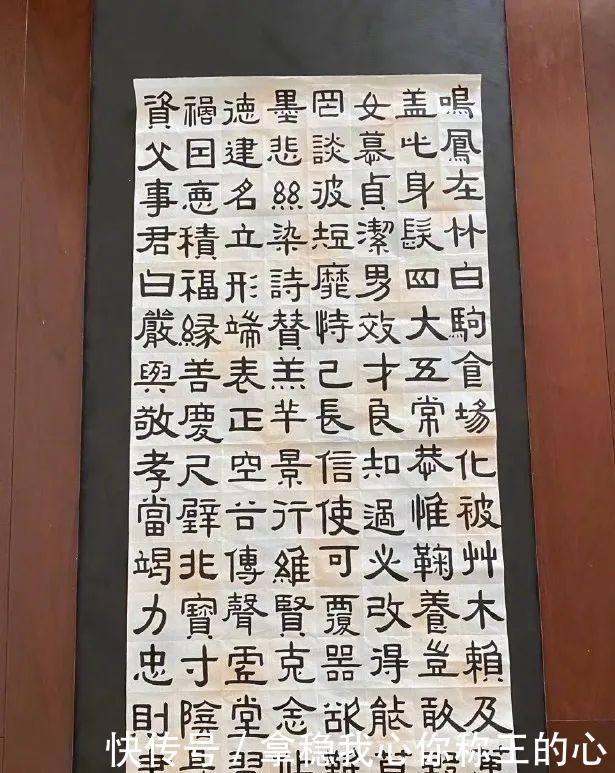 鳴鳳在竹白駒食場化被艸木賴及
盖此身髮四大五常恭惟鞠養豈敢
女慕貞潔男效才良知過必改得能
罔談彼短靡恃己長信使可覆器欲
墨悲絲染詩賛羔羊景行維賢克念
德建名立形端表正空谷傳聲虛堂
禍因惡積福緣善慶尺璧非寶寸陰
資父事君曰嚴與敬孝當竭力忠則
快传号/拿稳我心你称王的心